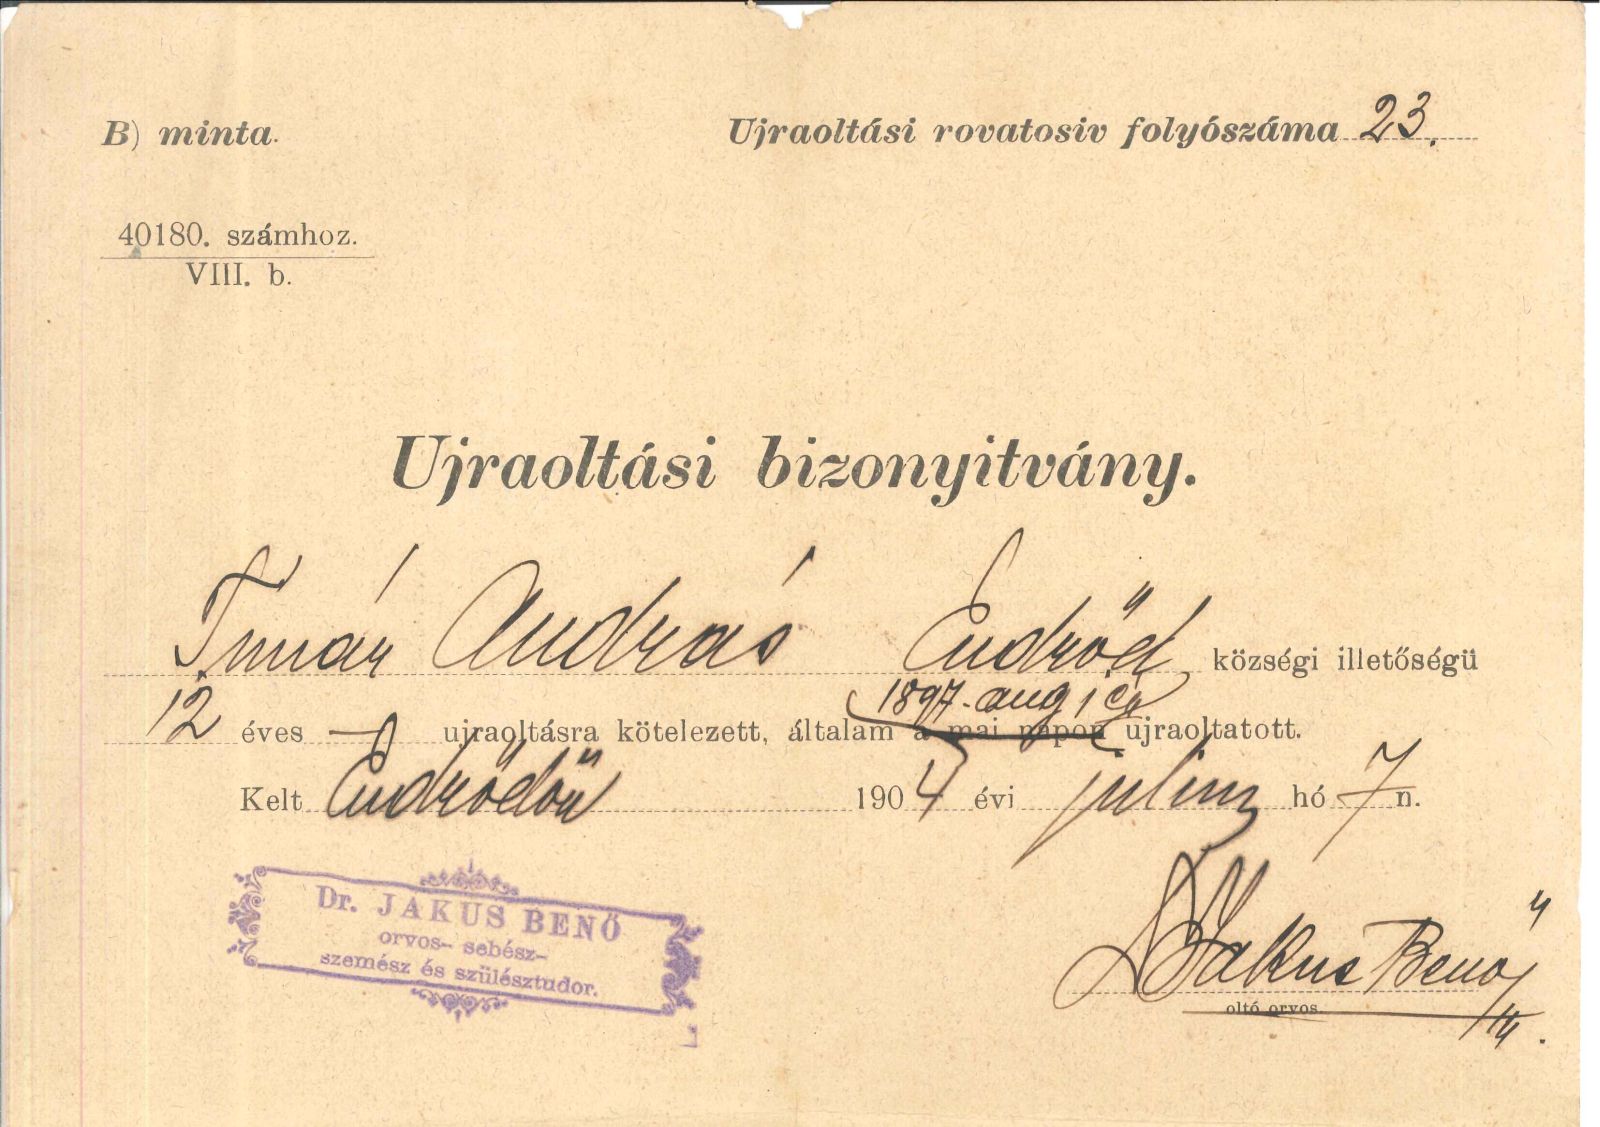 B) minta.
Ujraoltási rovatosiv folyószáma 23.
40180. számhoz.
VIII. b.
Ujraoltási bizonyitvány.
András Endrőd községi illetőségü
1897. aug
12 éves ujraoltásra kötelezett, általam a mai napon ujraoltatott.
Kelt Endrődön 1904 évi julius hó 7 n.
Dr. JAKUS BENŐ
orvos- sebész-
szemész és szülésztudor.
Dr Jakus Benő
oltó orvos